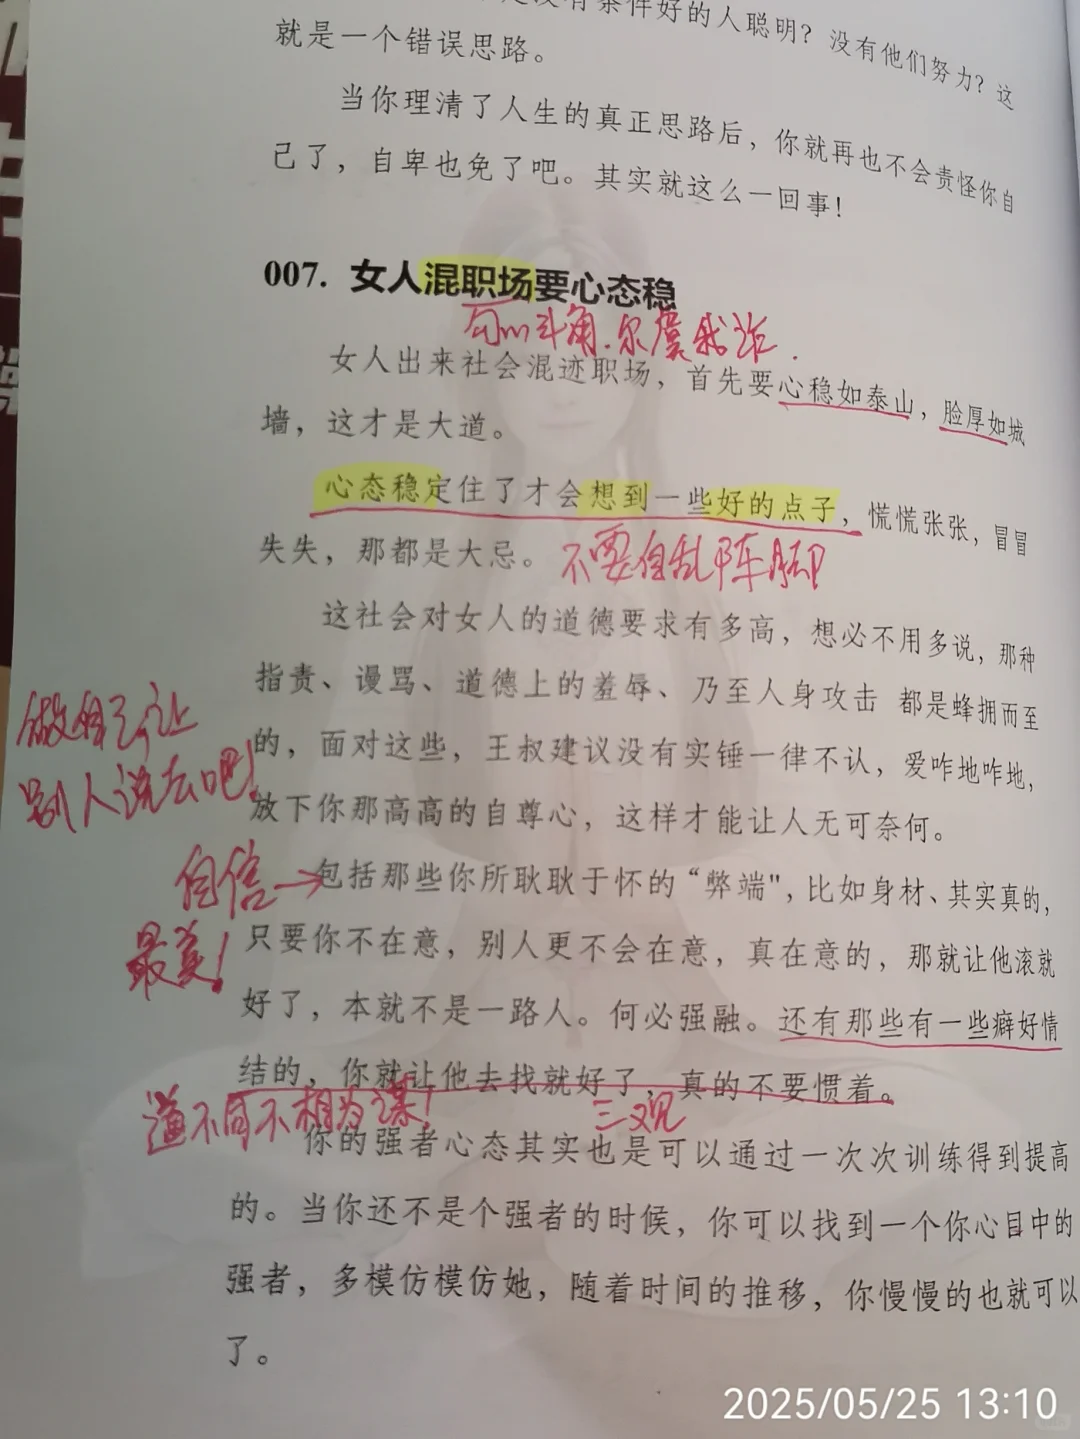 条件好的人聪明？没有他们努力？这
就是一个错误思路。
当你理清了人生的真正思路后，你就再也不会责怪你自
己了，自卑也免了吧。其实就这么一回事！
007. 女人混职场要心态稳
勾心斗角.尔虞我诈.
女人出来社会混迹职场，首先要心稳如泰山，脸厚如城
墙，这才是大道。
心态稳定住了才会想到一些好的点子，慌慌张张，冒冒
失失，那都是大忌。
不要自乱阵脚
这社会对女人的道德要求有多高，想必不用多说，那种
指责、谩骂、道德上的羞辱、乃至人身攻击 都是蜂拥而至
的，面对这些，王叔建议没有实锤一律不认，爱咋地咋地，
放下你那高高的自尊心，这样才能让人无可奈何。
做自己,让
别人说去吧!
包括那些你所耿耿于怀的“弊端"，比如身材、其实真的，
只要你不在意，别人更不会在意，真在意的，那就让他滚就
好了，本就不是一路人。何必强融。还有那些有一些癖好情
结的，你就让他去找就好了，真的不要惯着。
自信→
最美!
道不同不相为谋!
三观
你的强者心态其实也是可以通过一次次训练得到提高
的。当你还不是个强者的时候，你可以找到一个你心目中的
强者，多模仿模仿她，随着时间的推移，你慢慢的也就可以
了。
2025/05/25 13:10